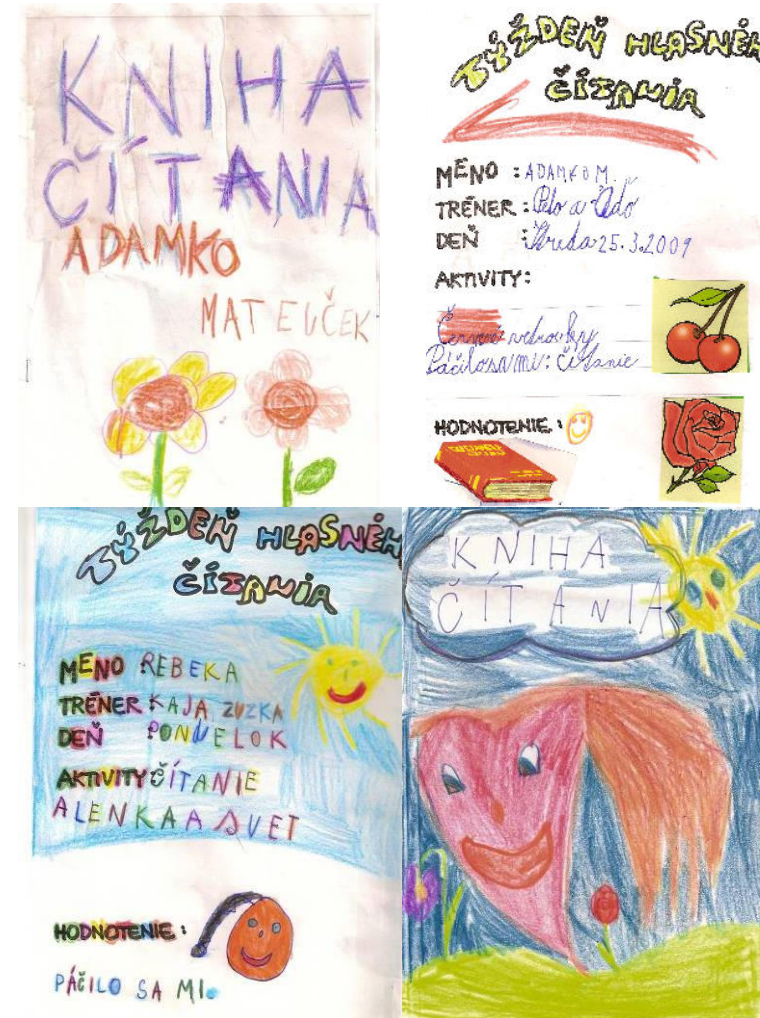 KNIHA
ČÍTANIA
ADAMKO
MATEUČEK
TÝŽDEŇ HLASNÉH
ČÍTANIA
MENO : ADAMKO M.
TRÉNER : Paťo a Aďo
DEŇ : Streda 25.3.2009
AKTIVITY:
Červené
Páčilo sa mi: čítanie
HODNOTENIE :
TÝŽDEŇ HLASNÉH
ČÍTANIA
MENO REBEKA
TRÉNER KAJA ZUZKA
DEŇ PONUELOK
AKTIVITY ČÍTANIE
ALENKA A SVET
HODNOTENIE :
PÁČILO SA MI.
KNIHA
ČÍTANIA